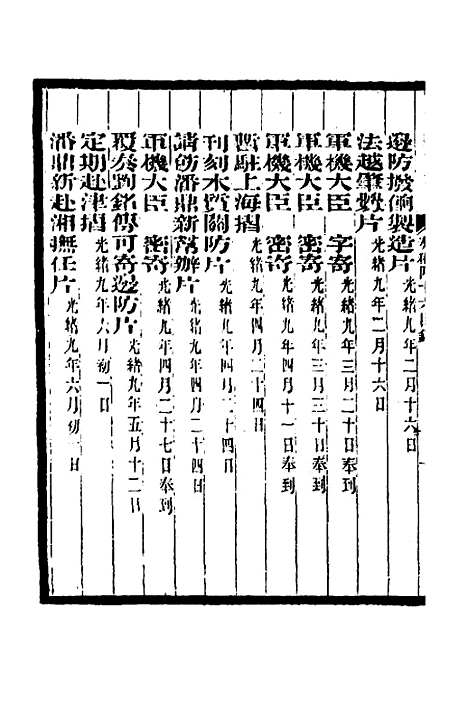 邊防撥餉製造片 光緒九年二月十六日
法越肇釁片 光緒九年二月十六日
軍機大臣 字寄 光緒九年三月二十日奉到
軍機大臣 密寄 光緒九年三月三十日奉到
軍機大臣 密寄 光緒九年四月十一日奉到
暫駐上海摺 光緒九年四月二十四日
刊刻木質關防片 光緒九年四月二十四日
請飭潘鼎新幫辦片 光緒九年四月二十四日
軍機大臣 密寄 光緒九年四月二十七日奉到
覆奏劉銘傳可寄邊防片 光緒九年五月十二日
定期赴津摺 光緒九年六月初一日
潘鼎新赴湘撫任片 光緒九年六月初一日